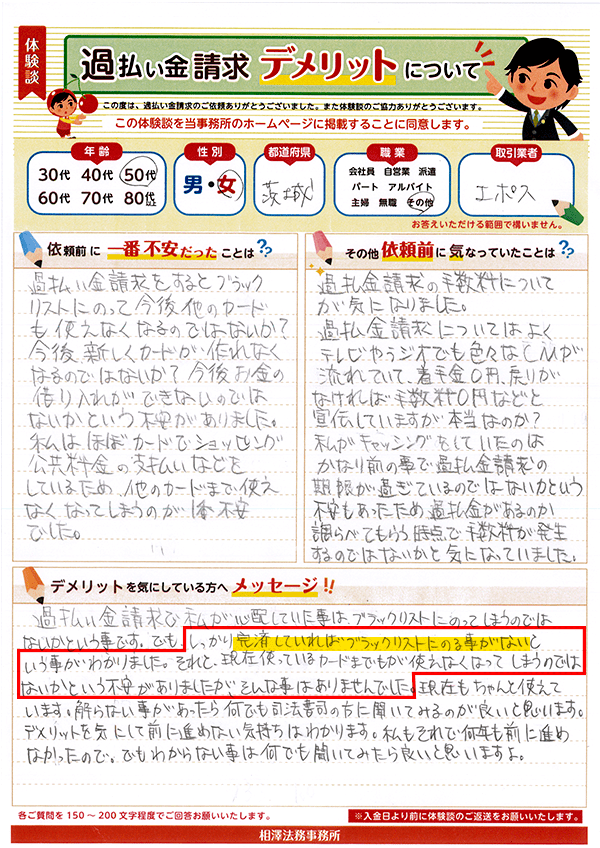 体験談
過払い金請求 デメリットについて
この度は、過払い金請求のご依頼ありがとうございました。また体験談のご協力ありがとうございます。
この体験談を当事務所のホームページに掲載することに同意します。
年齢
30代 40代 50代
60代 70代 80代以上
性別
男・女
都道府県
茨城
職業
会社員 自営業 派遣
パート アルバイト
主婦 無職 その他
取引業者
エポス
お答えいただける範囲で構いません。
依頼前に 一番不安だった ことは??
過払い金請求をするとブラック
リストにのって今後他のカード
も使えなくなるのではないか?
今後、新しくカードが作れなく
なるのではないか?今後お金の
借り入れができないのでは
ないかという不安がありました。
私はほぼカードでショッピング
公共料金の支払いなどを
しているため、他のカードまで使え
なくなってしまうのが1番不安
でした。
その他 依頼前に気なっていたことは??
過払金請求の手数料について
が気になりました。
過払金請求についてはよく
テレビやラジオでも色々なCMが
流れていて、着手金0円、戻りが
なければ手数料0円などと
宣伝していますが本当なのか?
私がキャッシングをしていたのは
かなり前の事で過払金請求の
期限が過ぎているのではないかという
不安もあったため過払金があるのか
調らべてもらう時点で手数料が発生
するのではないかと気になっていました。
デメリットを気にしている方へ メッセージ!!
過払い金請求で私が心配していた事はブラックリストにのってしまうのでは
ないかという事です。でも、しっかり完済していればブラックリストにのる事がないと
いう事がわかりました。それと、現在使っているカードまでもが使えなくなってしまうのでは
ないかという不安がありましたが、そんな事はありませんでした。現在もちゃんと使えて
います。解らない事があったら何でも司法書司の方に聞いてみるのが良いと思います。
デメリットを気にして前に進めない気持ちはわかります。私もそれで何年も前に進め
なかったので。でもわからない事は何でも聞いてみたら良いと思いますよ。
各ご質問を150〜200文字程度でご回答お願いいたします。
※入金日より前に体験談のご返送をお願いいたします。
相澤法務事務所